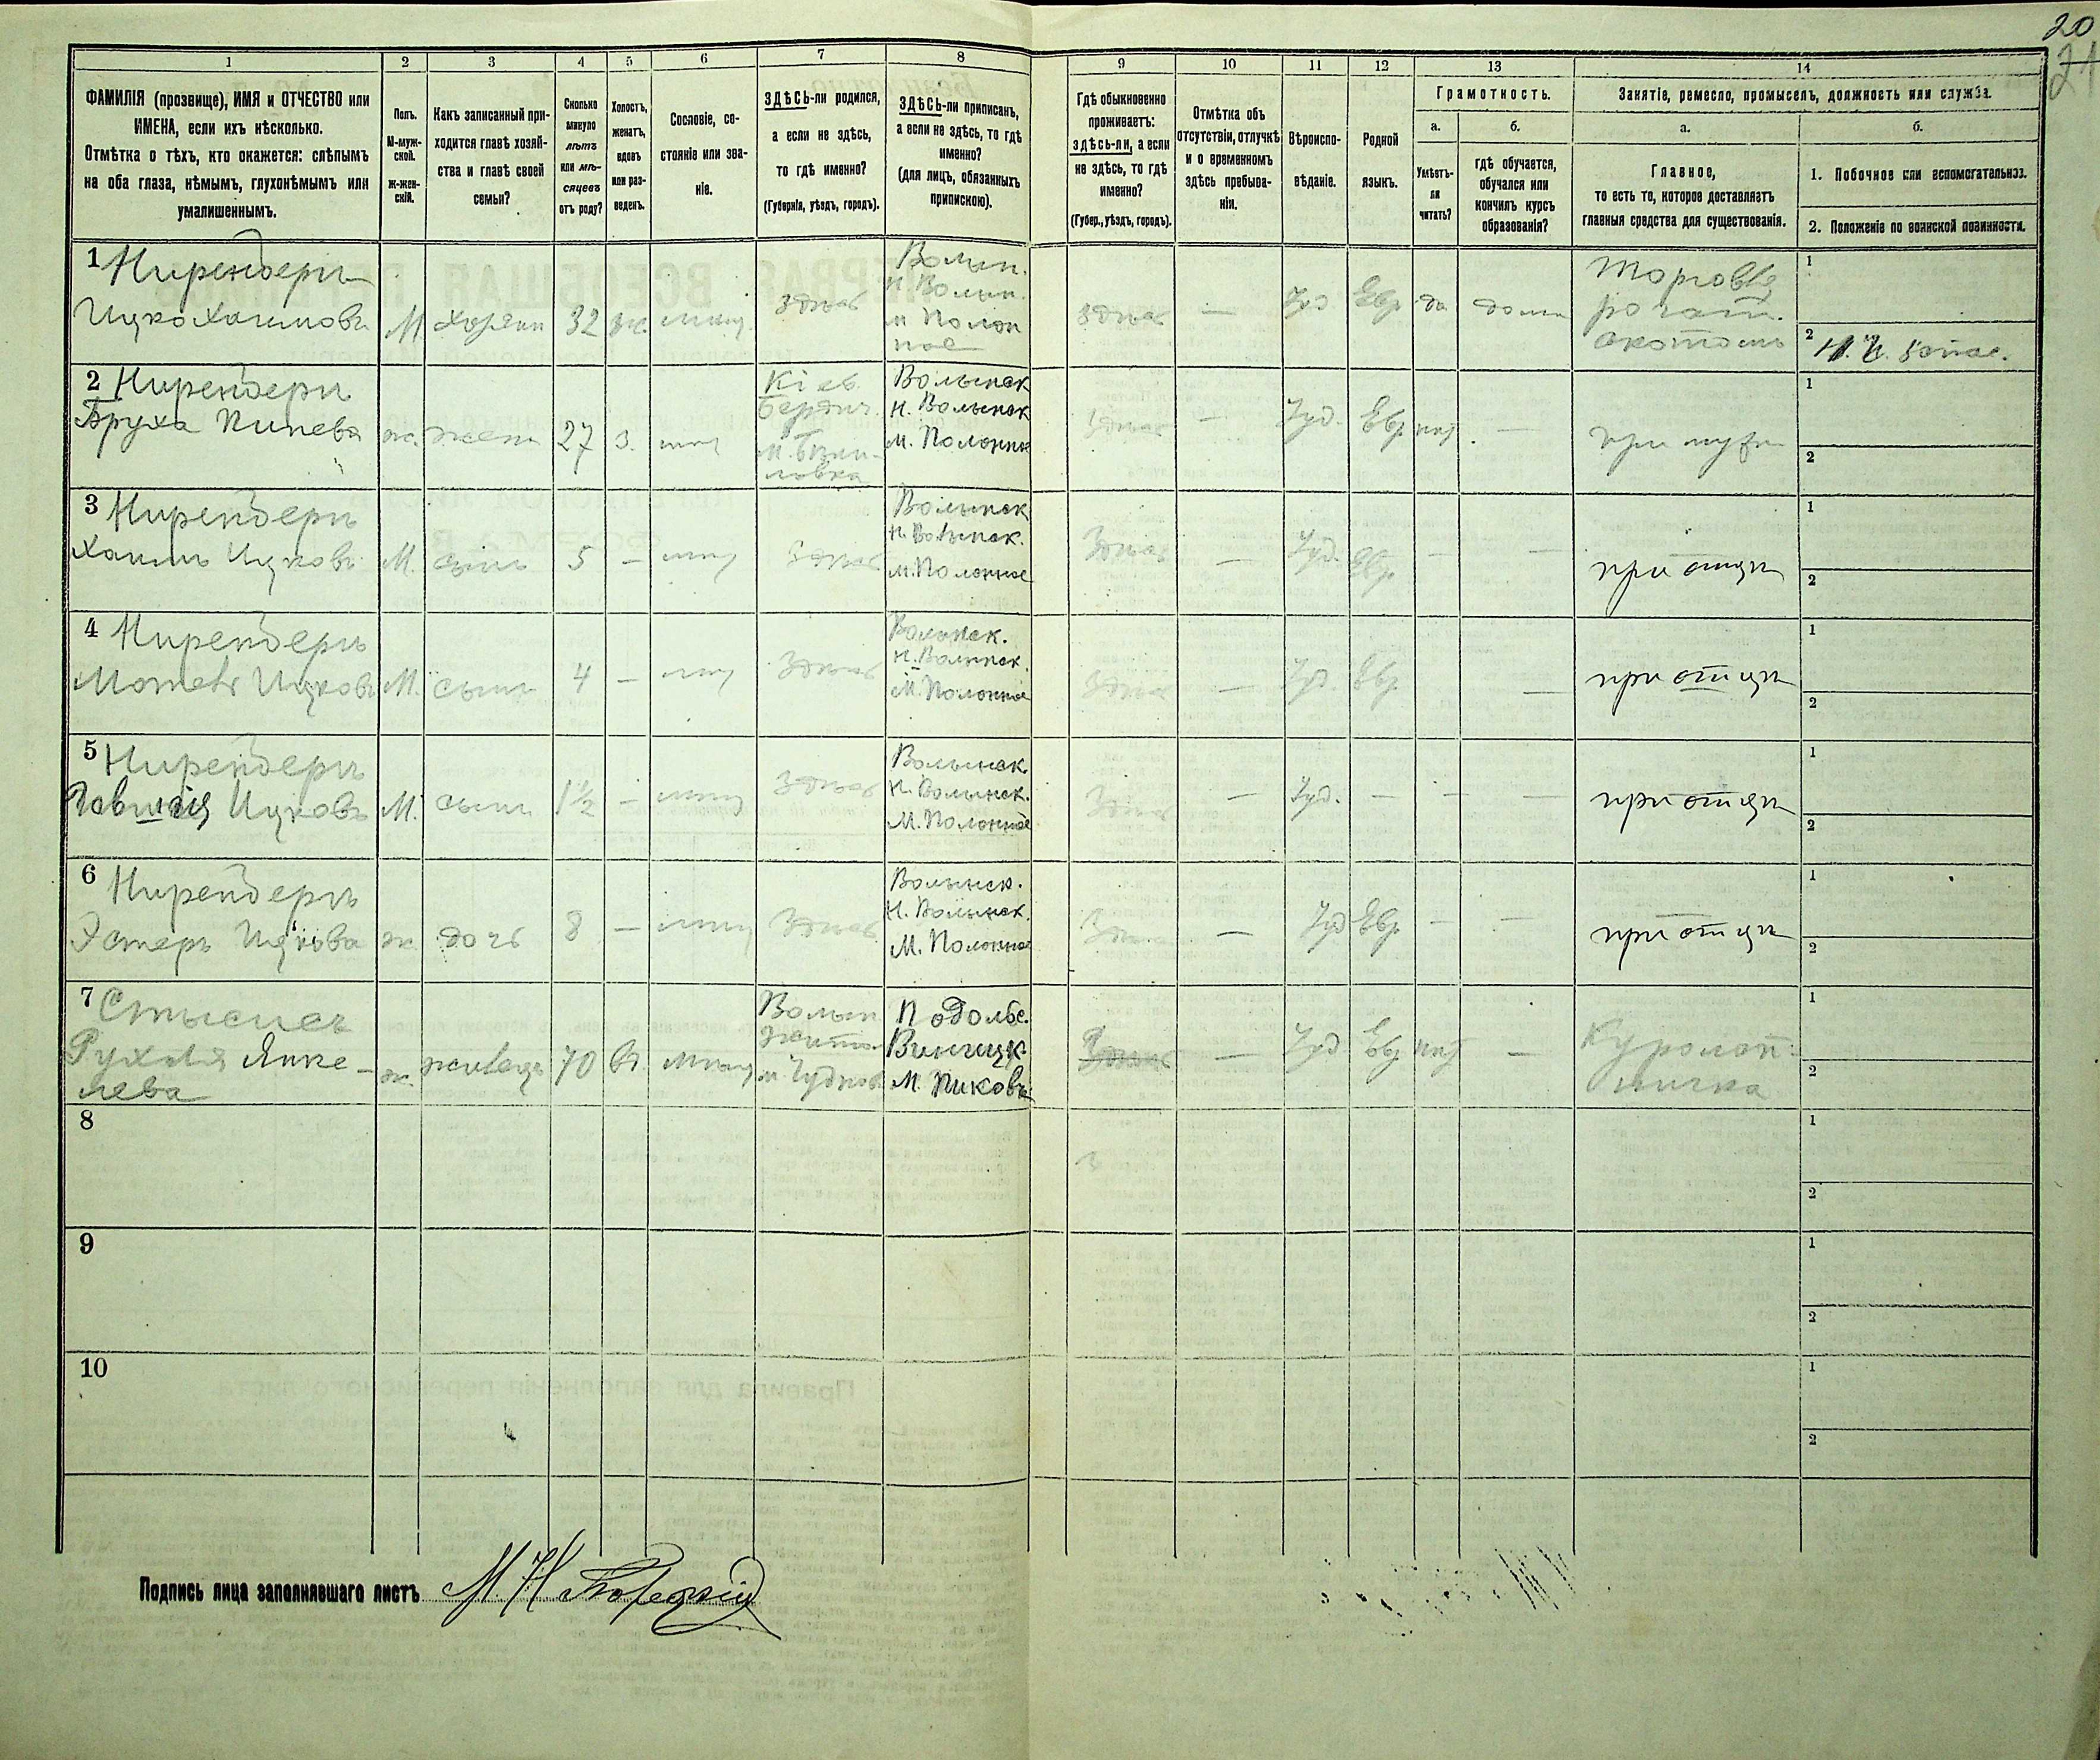 20
21
1 2 3 4 5 6 7 8 9 10 11 12 13 14
ФАМИЛІЯ (прозвище), ИМЯ и ОТЧЕСТВО или
ИМЕНА, если ихъ нѣсколько.
Отмѣтка о тѣхъ, кто окажется: слѣпымъ
на оба глаза, нѣмымъ, глухонѣмымъ или
умалишеннымъ.
Полъ.
М-муж-
ской.
Ж-жен-
скій.
Какъ записанный при-
ходится главѣ хозяй-
ства и главѣ своей
семьи?
Сколько
минуло
лѣтъ
или мѣ-
сяцевъ
отъ роду?
Холостъ,
женатъ,
вдовъ
или раз-
веденъ.
Сословіе, со-
стояніе или зва-
ніе.
ЗДѢСЬ-ли родился,
а если не здѣсь,
то гдѣ именно?
(Губернія, уѣздъ, городъ).
ЗДѢСЬ-ли приписанъ,
а если не здѣсь, то гдѣ
именно?
(для лицъ, обязанныхъ
припискою).
Гдѣ обыкновенно
проживаетъ:
здѣсь-ли, а если
не здѣсь, то гдѣ
именно?
(Губер., уѣздъ, городъ).
Отмѣтка объ
отсутствіи, отлучкѣ
и о временномъ
здѣсь пребыва-
ніи.
Вѣроиспо-
вѣданіе.
Родной
языкъ.
Грамотность.
а.
Умѣетъ-
ли
читать?
б.
гдѣ обучается,
обучался или
кончилъ курсъ
образованія?
Занятіе, ремесло, промыселъ, должность или служба.
а.
Главное,
то есть то, которое доставляетъ
главныя средства для существованія.
б.
1. Побочное или вспомогательное.
2. Положеніе по воинской повинности.
1 Ниренберъ
Ицко Хаимовъ
М. хозяин 32 ж. мѣщ. здѣсь
Волын.
Н. Волын.
м Полон
ное
здѣсь — Іуд Евр да дома
Торговля
рогат.
скотомъ
1
2
2 Ниренберъ
Бруха Пинева
ж. жена 27 з. мѣщ
Кіев.
Бердич.
Волынск
Н. Волынск
м. Полонне
здѣсь — Іуд. Евр. нѣт —
при мужѣ
1
2
3 Ниренберъ
Хаимъ Ицковъ
М. сынъ 5 — мѣщ здѣсь
Волынск
Н. Волынск.
м. Полонное
Здѣсь — Іуд. Евр. — —
при отцѣ
1
2
4 Ниренберъ
Мотель Ицковъ
М. сынъ 4 — мѣщ Здѣсь
Волынск.
Н. Волынск.
М. Полонное
Здѣсь — Іуд Евр. —
при отцѣ
1
2
5 Ниренберъ
Ицковъ
М. сынъ 1½ — мѣщ Здѣсь
Волынск.
Н. Волынск.
М. Полонное
Здѣсь — Іуд. — — —
при отцѣ
1
2
6 Ниренберъ
Эстеръ Ицкова
ж. дочь 8 — мѣщ Здѣсь
Волынск.
Н. Волынск.
М. Полонное
— Іуд Евр — —
при отцѣ
1
2
7
Рухля Янке-
лева
ж. 70 вд. мѣщ
Волын
Житом
м. Чуднов
Подольс.
Винницк
М. Пиковъ
Здѣсь — Іуд Евр нѣт —
1
2
8
1
2
9
1
2
10
1
2
Подпись лица заполнявшаго листъ